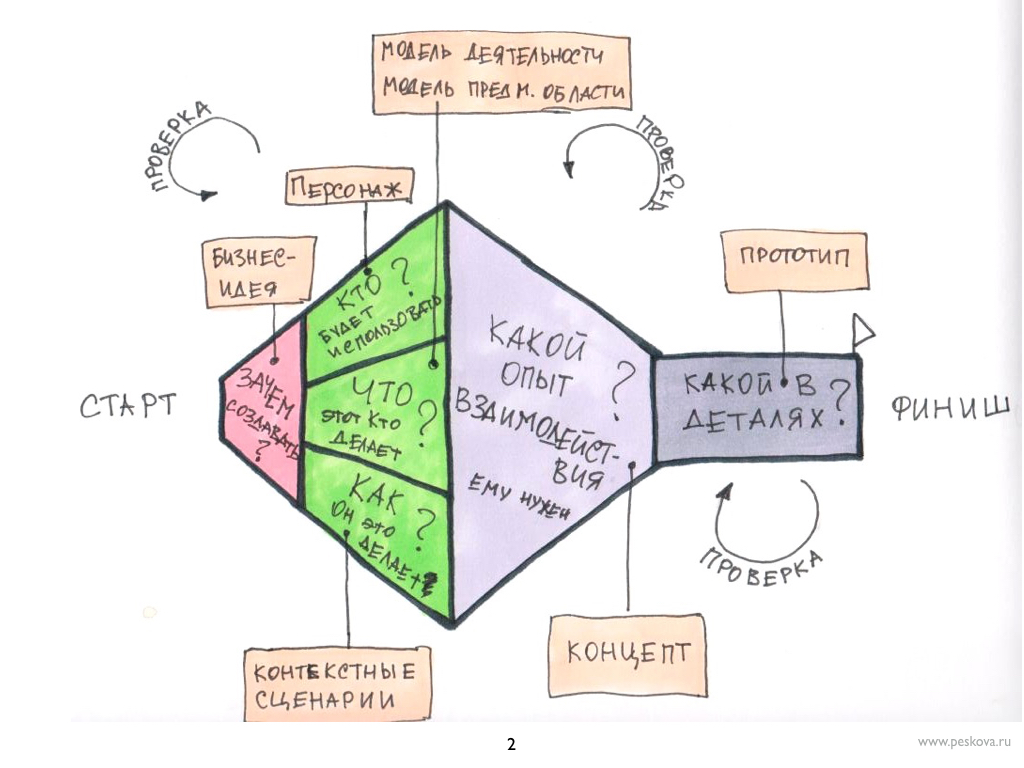 МОДЕЛЬ ДЕЯТЕЛЬНОСТИ
МОДЕЛЬ ПРЕДМ. ОБЛАСТИ
ПРОВЕРКА
ПРОВЕРКА
ПЕРСОНАЖ
БИЗНЕС-
ИДЕЯ
ПРОТОТИП
КТО ?
БУДЕТ
ИСПОЛЬЗОВАТЬ
СТАРТ
ЗАЧЕМ
СОЗДАВАТЬ
?
ЧТО
ЭТОТ КТО ?
ДЕЛАЕТ
КАК ?
ОН ЭТО
ДЕЛАЕТ
КАКОЙ
ОПЫТ ?
ВЗАИМОДЕЙСТ-
ВИЯ
ЕМУ НУЖЕН
КАКОЙ В ?
ДЕТАЛЯХ
ФИНИШ
ПРОВЕРКА
КОНТЕКСТНЫЕ
СЦЕНАРИИ
КОНЦЕПТ
2
www.peskova.ru